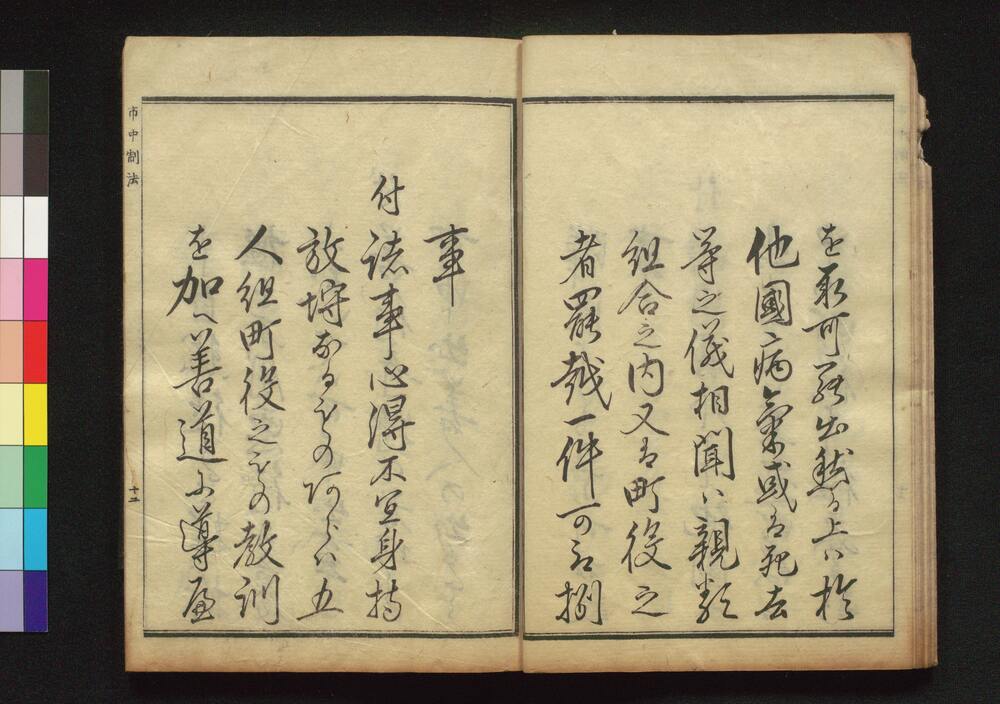 を取可罷出然る上ハ於
他國病氣或は死去
等之儀相聞ハ親類
組合之内又は町役之
者罷越一件可引捌
事
付 諸事心得不宜身持
放埓なるものあらハ五
人組町役之もの教訓
を加へ善道に導
市中制法
十二